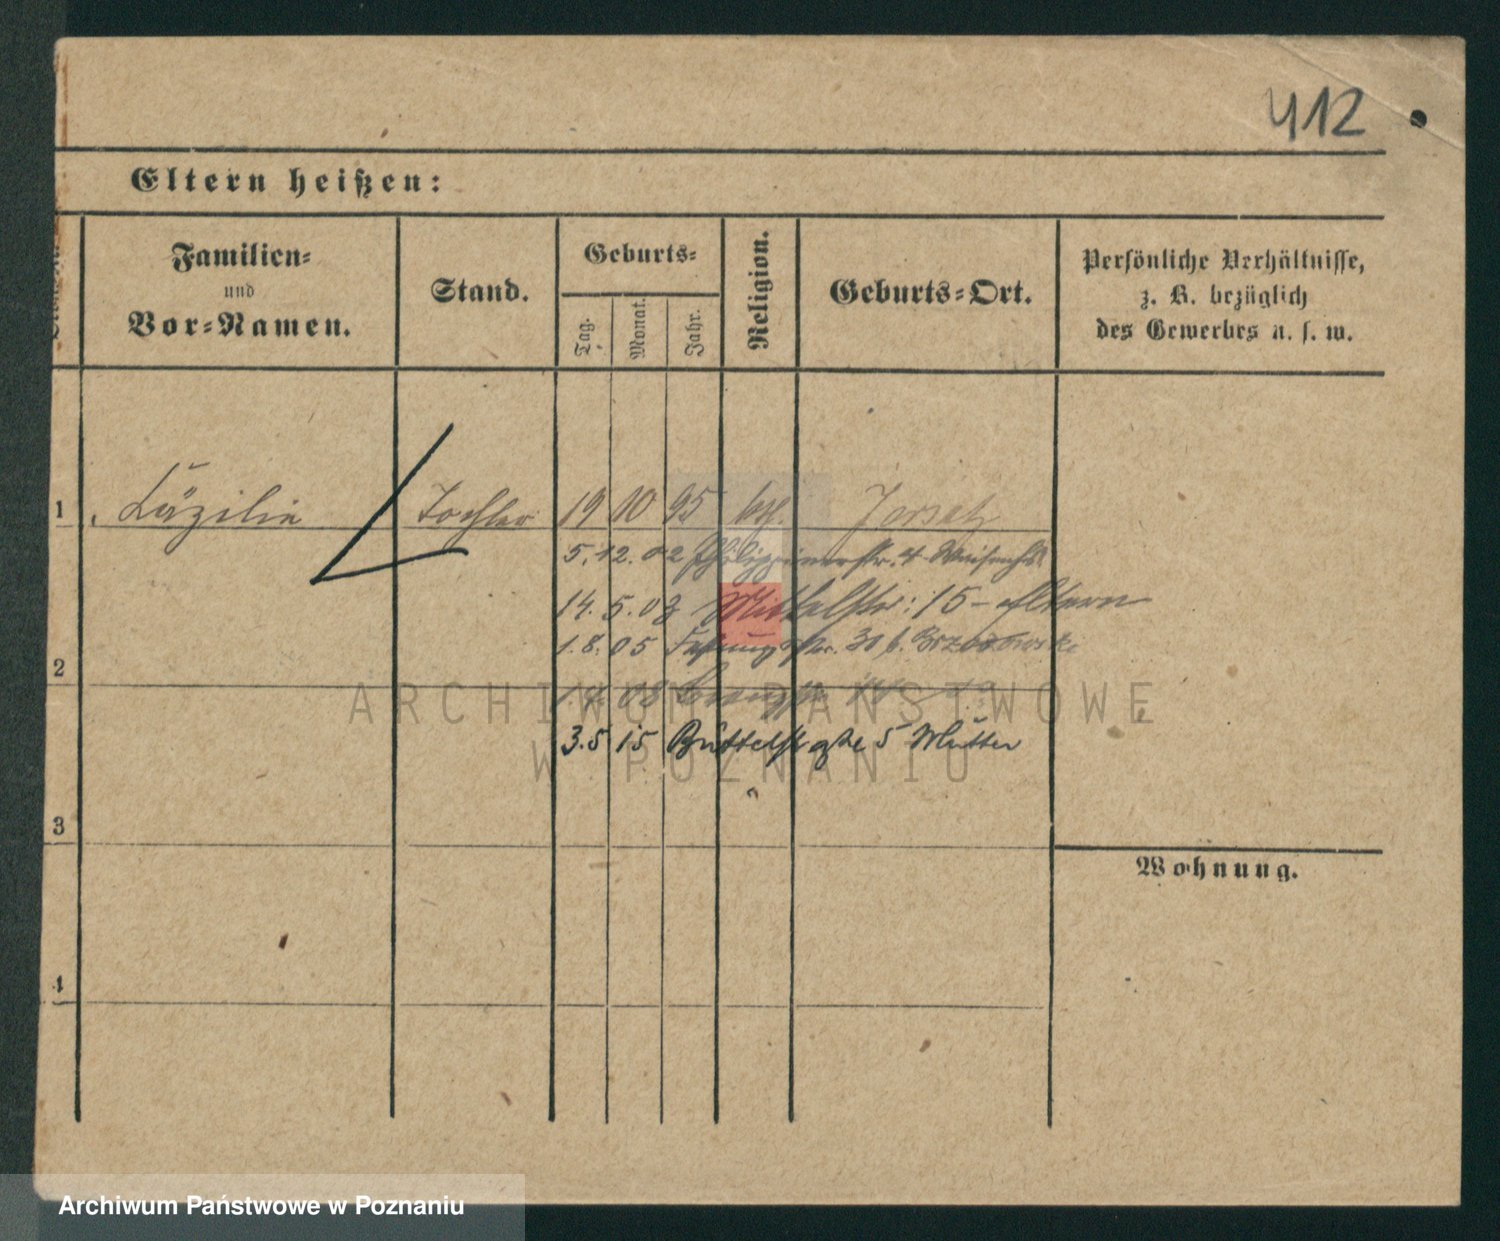 412
Eltern heißen:
Familien=
und
Vor=Namen.
Stand.
Geburts=
Tag.
Monat.
Jahr.
Religion.
Geburts=Ort.
Persönliche Verhältnisse,
z. B. bezüglich
des Gewerbes u. s. w.
1 Cäzilie Tochter 19 10 95 Jersitz
5. 12. 02 4
14. 5. 03 Mittelstr: 15 - Eltern
2 1. 8. 05 30 b. Brzozowski
08
3. 5 15 Büttelstraße 5 Mutter
3
Wohnung.
4
ARCHIWUM PAŃSTWOWE
W POZNANIU
Archiwum Państwowe w Poznaniu